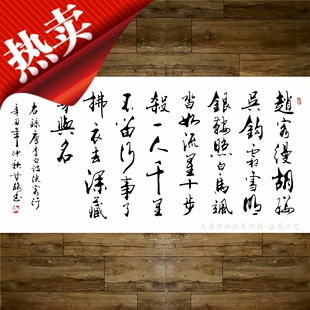 热卖
趙客縵胡纓
吳鈎霜雪明
銀鞍照白馬颯
沓如流星十步
殺一人千里
不留行事了
拂衣去深藏
身與名
右錄唐李白詩俠客行